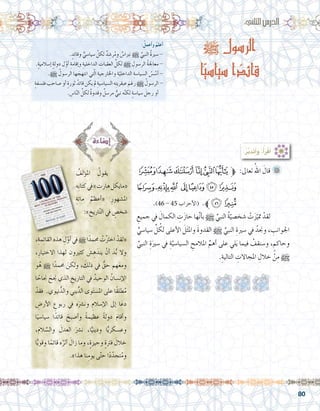 الدرس الثاني
الرسول ﷺ
قائدًا سياسيًا
أتعلم وأعمل
- سيرة النبي ﷺ نبراس ومرشد لكل سياسي وقائد.
- معالجة الرسول ﷺ لكل العقبات الداخلية وإقامة أول دولة إسلامية.
- أسس السياسة الداخلية والخارجية التي انتهجها الرسول ﷺ.
- الرسول ﷺ رغم عبقريته السياسية لم يكن قائد ثورة أو صاحب فلسفة
أو رجل سياسة لكنه نبي مرسل وقدوة لكل الناس.
اقرأ وتدبر
قال الله تعالى: ﴿ يَا أَيُّهَا النَّبِيُّ إِنَّا أَرْسَلْنَاكَ شَاهِدًا وَمُبَشِّرًا
وَنَذِيرًا ﴿٤٥﴾ وَدَاعِيًا إِلَى اللَّهِ بِإِذْنِهِ وَسِرَاجًا
مُنِيرًا ﴿٤٦﴾ ﴾. (الأحزاب 45 – 46).
لقد تميزت شخصية النبي ﷺ بأنها حازت الكمال في جميع
الجوانب، وتجد في سيرة النبي ﷺ القدوة والمثل الأعلى لكل سياسي
وحاكم، وستقف فيما يأتي على أهم الملامح السياسية في سيرة النبي
ﷺ من خلال المجالات التالية.
إضاءة
يقول المؤلف
«مايكل هارت» في كتابه
المشهور «أعظم مائة
شخص في التاريخ»:
100
«لقد اخترت محمدًا ﷺ في أول هذه القائمة،
ولا بد أن يندهش كثيرون لهذا الاختيار،
ومعهم حق في ذلك، ولكن محمدًا ﷺ هو
الإنسان الوحيد في التاريخ الذي نجح نجاحًا
مطلقًا على المستوى الديني والدنيوي. فقد
دعا إلى الإسلام ونشره في ربوع الأرض
وأقام دولة عظيمة وأصبح قائدًا سياسيًا
وعسكريًا ودينيًا، نشر العدل والسلام،
خلال فترة وجيزة، وما زال أثره قائمًا وقويًا
ومتجددًا حتى يومنا هذا».
80